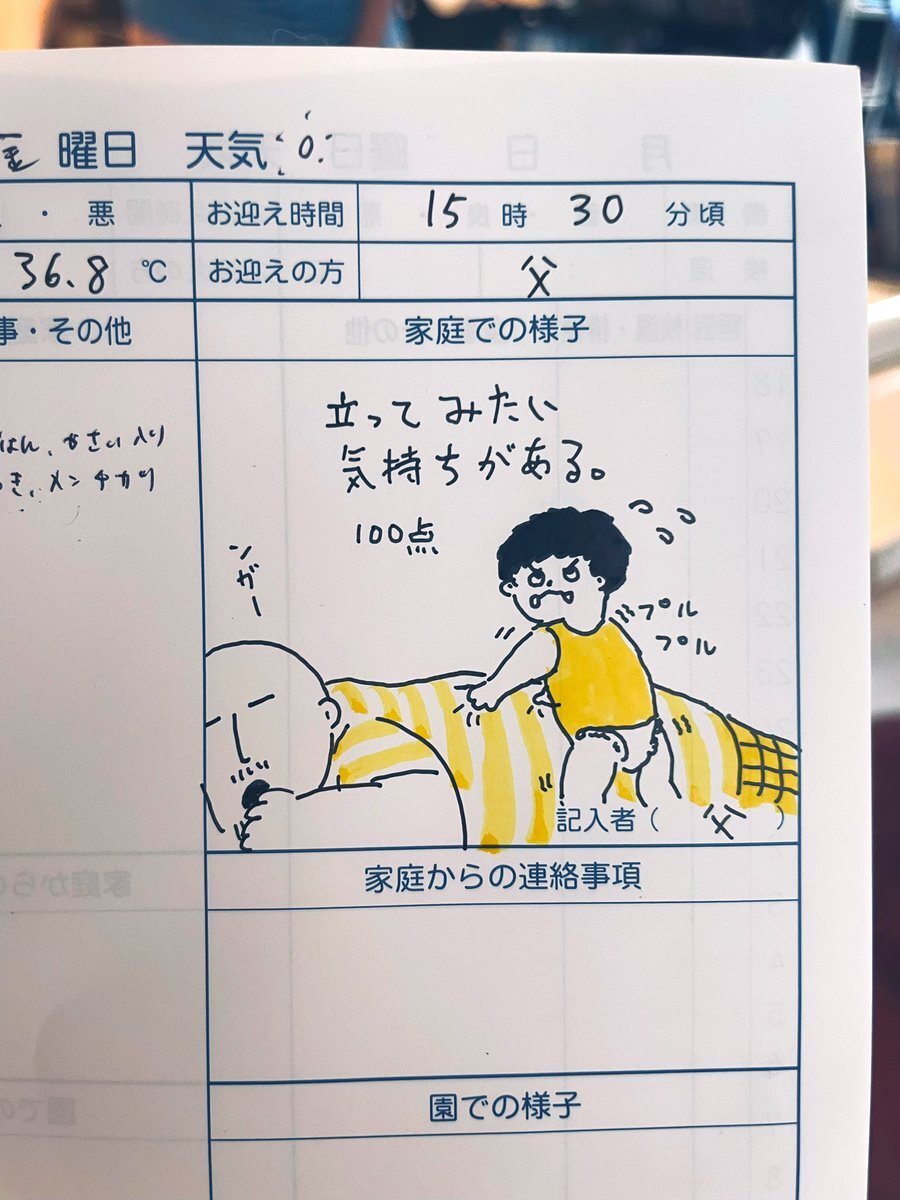 金 曜日 天気
・ 悪 お迎え時間 15 時 30 分頃
36.8 ℃ お迎えの方 父
事・その他 家庭での様子
立ってみたい
気持ちがある。
100点
ごはん、やさい入り
メンチカツ
ンガー
プル
プル
記入者( 父 )
家庭からの連絡事項
園での様子